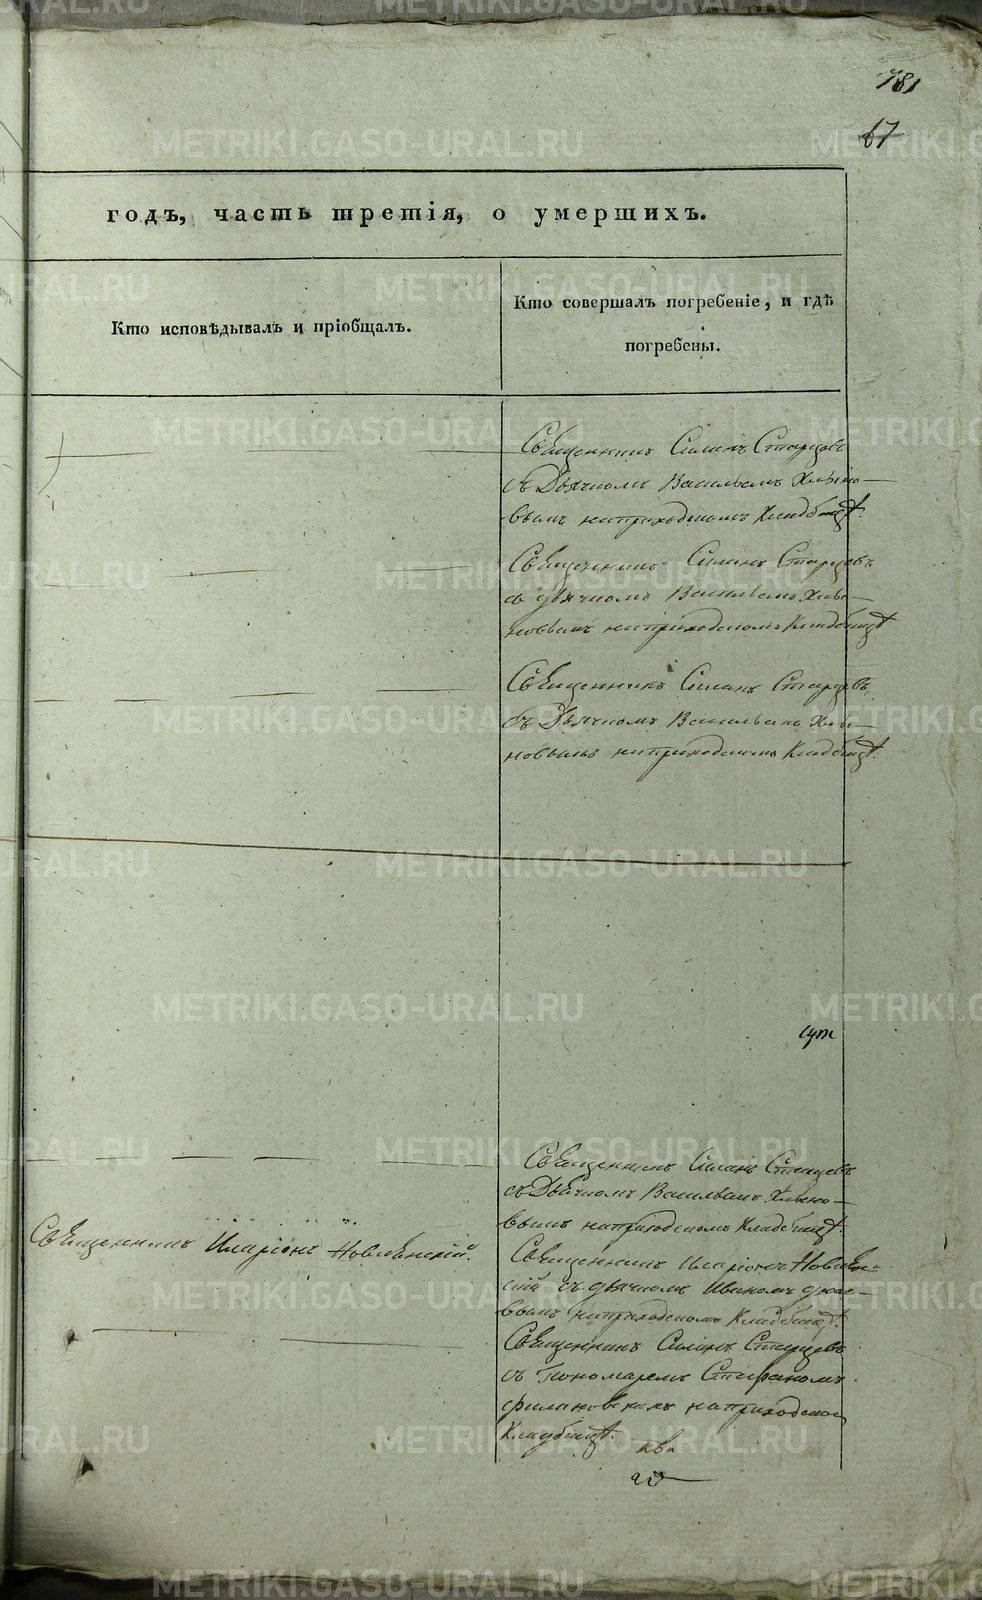 781
67
годъ, часть третія, о умершихъ.
Кто исповѣдывалъ и пріобщалъ.
Кто совершалъ погребеніе, и гдѣ
погребены.
Священникъ Симанъ Старцовъ
съ Дьячкомъ Васильемъ
на приходскомъ Кладбищѣ.
Священникъ Симанъ Старцовъ
съ дьячкомъ Васильемъ
новымъ на приходскомъ Кладбищѣ
Священникъ Симанъ Старцовъ
съ Дьячкомъ Васильемъ
новымъ на приходскомъ Кладбищѣ.
Священникъ Симанъ Старцовъ
съ Дьячкомъ Васильемъ
вымъ на приходскомъ Кладбищѣ.
Священникъ Иларіонъ Новлянскій.
Священникъ Иларіонъ
съ дьячкомъ Иваномъ
вымъ на приходскомъ Кладбищѣ.
Священникъ Симанъ Старцовъ
съ Пономаремъ Стефаномъ
на приходскомъ
Кладбищѣ.
METRIKI.GASO-URAL.RU